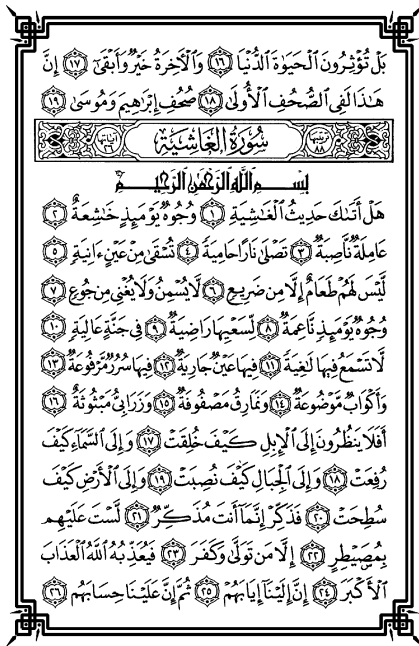 بَلْ تُؤْثِرُونَ ٱلْحَيَوٰةَ ٱلدُّنْيَا ١٦ وَٱلْأَخِرَةُ خَيْرٌ وَأَبْقَىٰٓ ١٧ إِنَّ
هَٰذَا لَفِى ٱلصُّحُفِ ٱلْأُولَىٰ ١٨ صُحُفِ إِبْرَٰهِيمَ وَمُوسَىٰ ١٩
سُورَةُ ٱلْغَاشِيَةِ
بِسْمِ ٱللَّهِ ٱلرَّحْمَٰنِ ٱلرَّحِيمِ
هَلْ أَتَىٰكَ حَدِيثُ ٱلْغَٰشِيَةِ ١ وُجُوهٌ يَوْمَئِذٍ خَٰشِعَةٌ ٢
عَامِلَةٌ نَّاصِبَةٌ ٣ تَصْلَىٰ نَارًا حَامِيَةً ٤ تُسْقَىٰ مِنْ عَيْنٍ ءَانِيَةٍ ٥
لَّيْسَ لَهُمْ طَعَامٌ إِلَّا مِن ضَرِيعٍ ٦ لَّا يُسْمِنُ وَلَا يُغْنِى مِن جُوعٍ ٧
وُجُوهٌ يَوْمَئِذٍ نَّاعِمَةٌ ٨ لِّسَعْيِهَا رَاضِيَةٌ ٩ فِى جَنَّةٍ عَالِيَةٍ ١٠
لَّا تَسْمَعُ فِيهَا لَٰغِيَةً ١١ فِيهَا عَيْنٌ جَارِيَةٌ ١٢ فِيهَا سُرُرٌ مَّرْفُوعَةٌ ١٣
وَأَكْوَابٌ مَّوْضُوعَةٌ ١٤ وَنَمَارِقُ مَصْفُوفَةٌ ١٥ وَزَرَابِىُّ مَبْثُوثَةٌ ١٦
أَفَلَا يَنظُرُونَ إِلَى ٱلْإِبِلِ كَيْفَ خُلِقَتْ ١٧ وَإِلَى ٱلسَّمَآءِ كَيْفَ
رُفِعَتْ ١٨ وَإِلَى ٱلْجِبَالِ كَيْفَ نُصِبَتْ ١٩ وَإِلَى ٱلْأَرْضِ كَيْفَ
سُطِحَتْ ٢٠ فَذَكِّرْ إِنَّمَآ أَنتَ مُذَكِّرٌ ٢١ لَّسْتَ عَلَيْهِم
بِمُصَيْطِرٍ ٢٢ إِلَّا مَن تَوَلَّىٰ وَكَفَرَ ٢٣ فَيُعَذِّبُهُ ٱللَّهُ ٱلْعَذَابَ
ٱلْأَكْبَرَ ٢٤ إِنَّ إِلَيْنَآ إِيَابَهُمْ ٢٥ ثُمَّ إِنَّ عَلَيْنَا حِسَابَهُم ٢٦